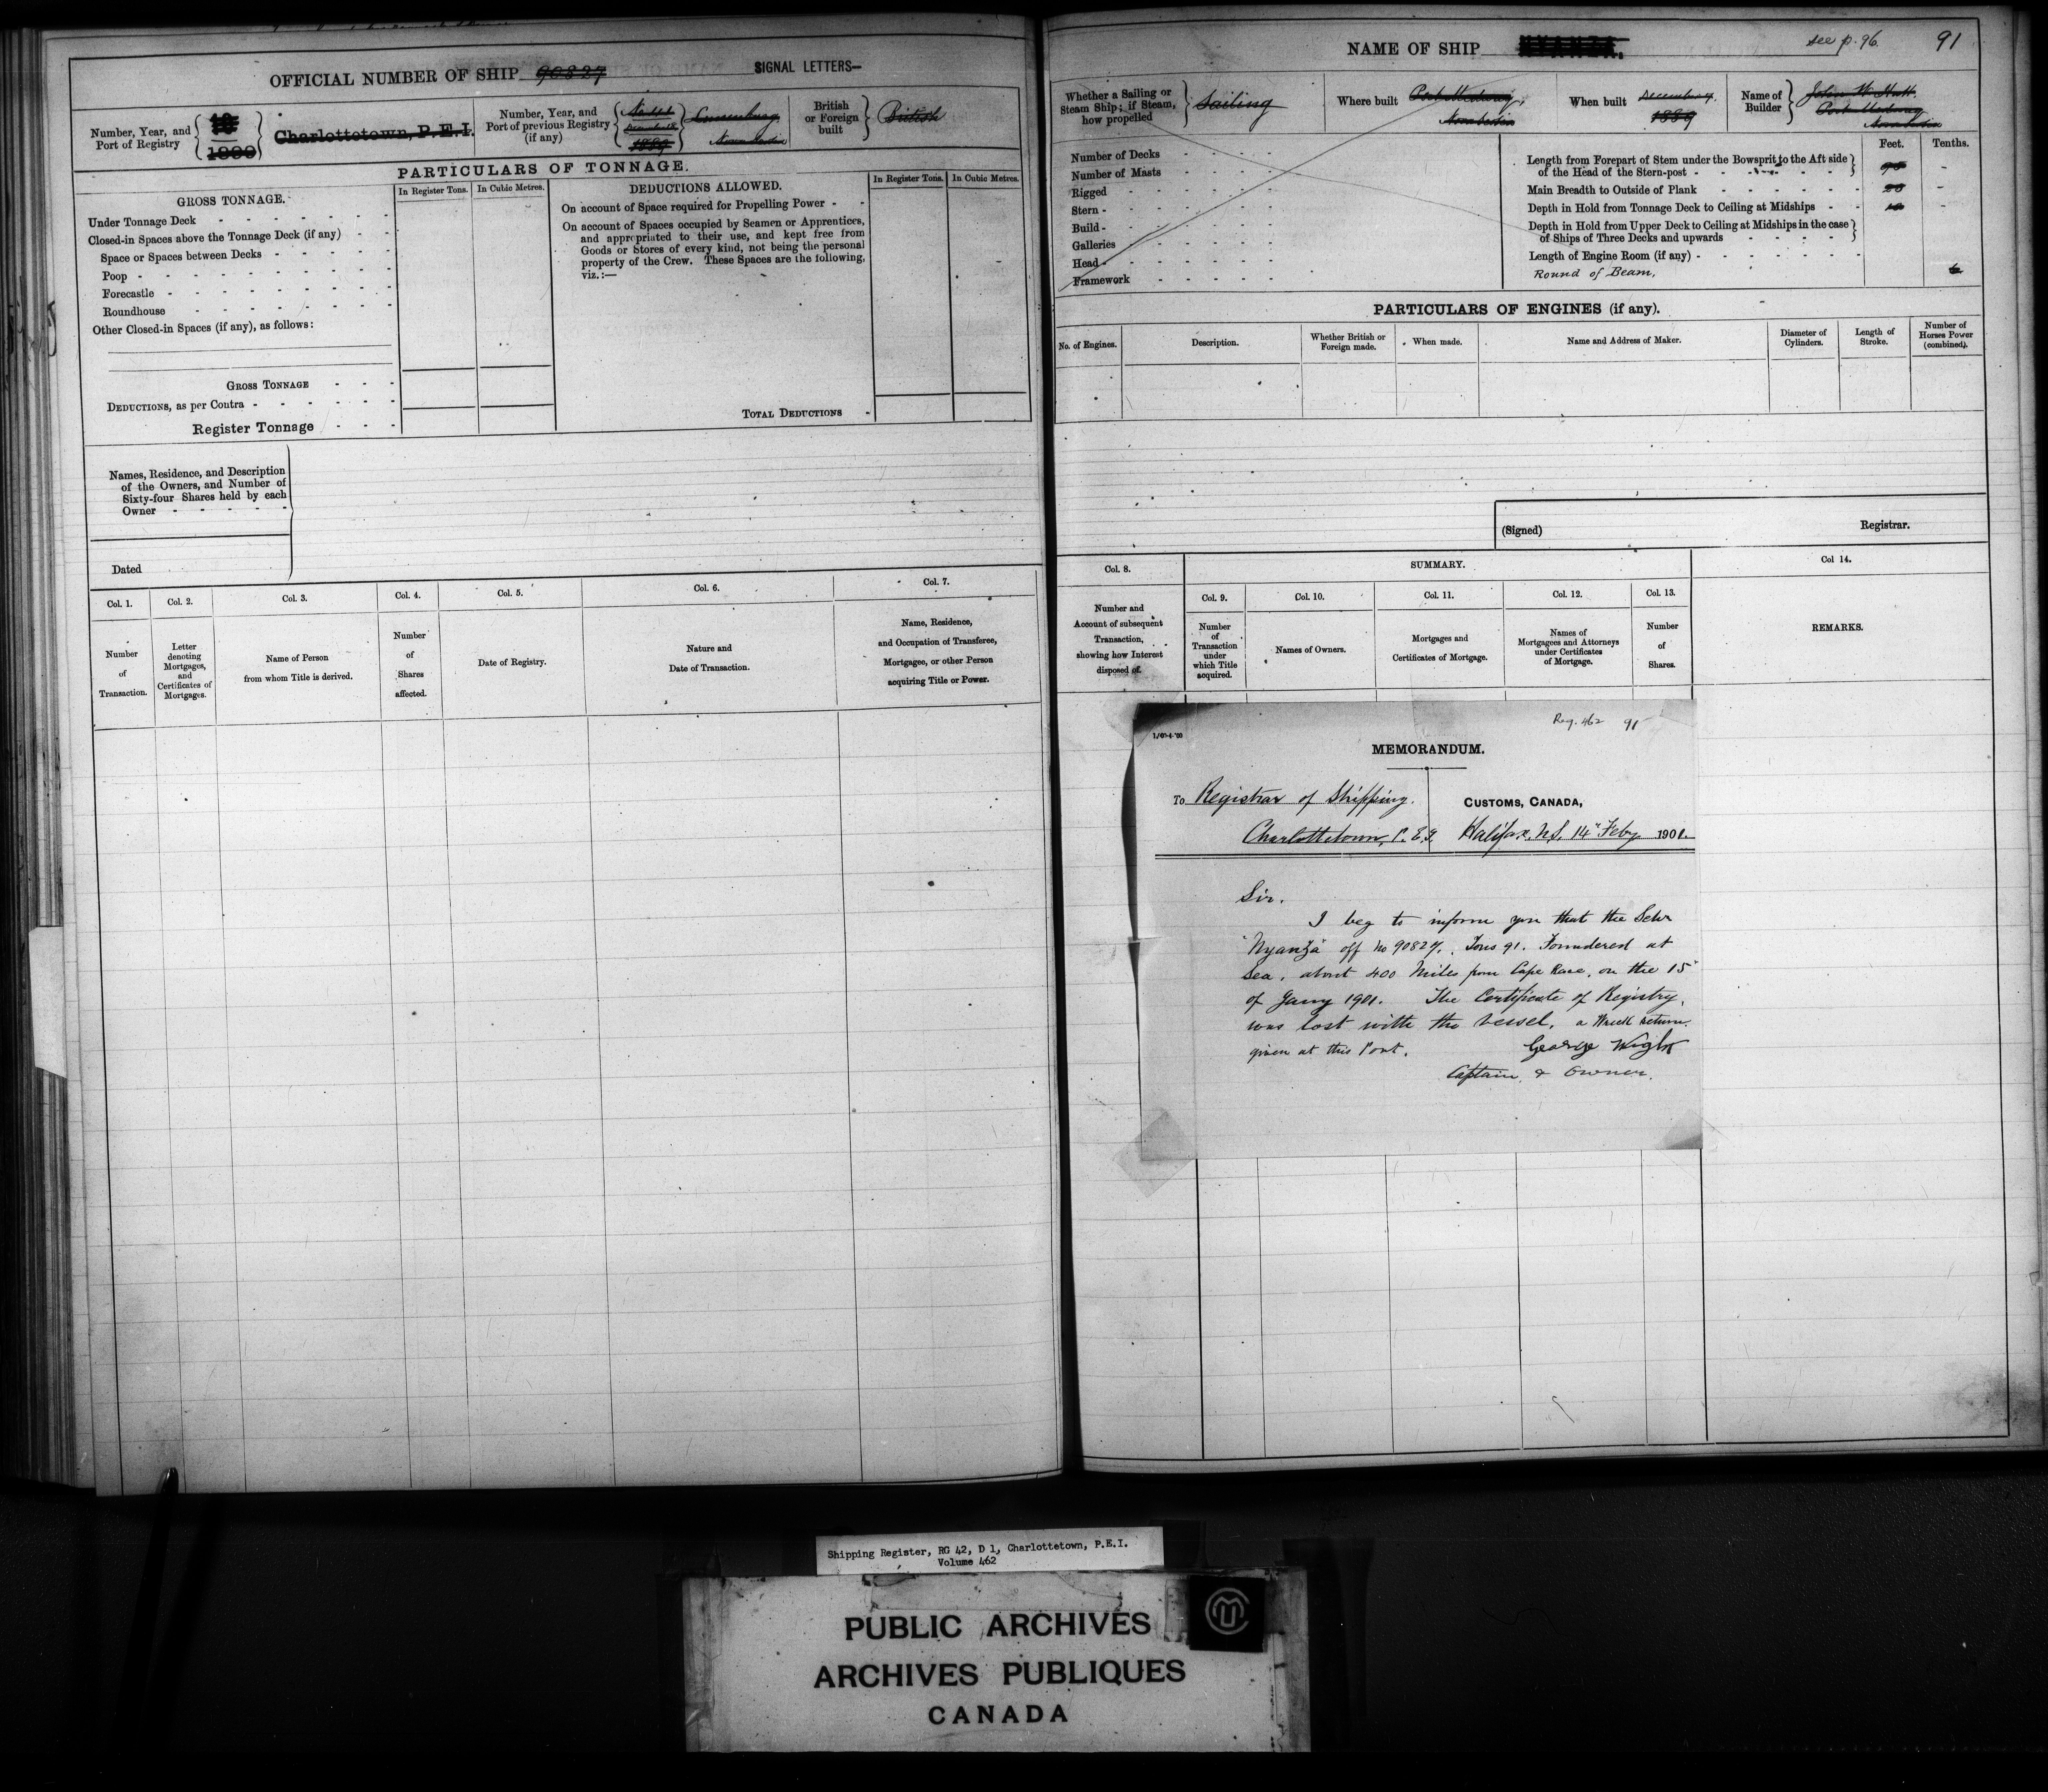 OFFICIAL NUMBER OF SHIP 90827
SIGNAL LETTERS—
Number, Year, and
Port of Registry
Charlottetown, P.E.I.
Number, Year, and
Port of previous Registry
(if any)
1889
Lunenburg
Nova Scotia
British
or Foreign
built
British
PARTICULARS OF TONNAGE.
GROSS TONNAGE.
In Register Tons.
In Cubic Metres.
Under Tonnage Deck
Closed-in Spaces above the Tonnage Deck (if any)
Space or Spaces between Decks
Poop
Forecastle
Roundhouse
Other Closed-in Spaces (if any), as follows:
GROSS TONNAGE
DEDUCTIONS, as per Contra
Register Tonnage
DEDUCTIONS ALLOWED.
In Register Tons.
In Cubic Metres.
On account of Space required for Propelling Power
On account of Spaces occupied by Seamen or Apprentices,
and appropriated to their use, and kept free from
Goods or Stores of every kind, not being the personal
property of the Crew. These Spaces are the following,
viz.:—
TOTAL DEDUCTIONS
Names, Residence, and Description
of the Owners, and Number of
Sixty-four Shares held by each
Owner
Dated
Col. 1.
Col. 2.
Col. 3.
Col. 4.
Col. 5.
Col. 6.
Col. 7.
Number
of
Transaction.
Letter
denoting
Mortgages,
and
Certificates of
Mortgages.
Name of Person
from whom Title is derived.
Number
of
Shares
affected.
Date of Registry.
Nature and
Date of Transaction.
Name, Residence,
and Occupation of Transferee,
Mortgagee, or other Person
acquiring Title or Power.
NAME OF SHIP NYANZA.
see p. 96
91
Whether a Sailing or
Steam Ship; if Steam,
how propelled
Sailing
Where built
Port Medway,
Nova Scotia
When built
December
1889
Name of
Builder
John W.
Port Medway
Nova Scotia
Number of Decks
Number of Masts
Rigged
Stern
Build
Galleries
Head
Framework
Feet.
Tenths.
Length from Forepart of Stem under the Bowsprit to the Aft side
of the Head of the Stern-post
Main Breadth to Outside of Plank
Depth in Hold from Tonnage Deck to Ceiling at Midships
Depth in Hold from Upper Deck to Ceiling at Midships in the case
of Ships of Three Decks and upwards
Length of Engine Room (if any)
Round of Beam,
PARTICULARS OF ENGINES (if any).
No. of Engines.
Description.
Whether British or
Foreign made.
When made.
Name and Address of Maker.
Diameter of
Cylinders.
Length of
Stroke.
Number of
Horses Power
(combined).
(Signed)
Registrar.
Col. 8.
SUMMARY.
Col 14.
Col. 9.
Col. 10.
Col. 11.
Col. 12.
Col. 13.
Number and
Account of subsequent
Transaction,
showing how Interest
disposed of.
Number
of
Transaction
under
which Title
acquired.
Names of Owners.
Mortgages and
Certificates of Mortgage.
Names of
Mortgagees and Attorneys
under Certificates
of Mortgage.
Number
of
Shares.
REMARKS.
Reg. 462 91
MEMORANDUM.
To Registrar of Shipping.
Charlottetown, P.E.I.
CUSTOMS, CANADA,
Halifax, N.S. 14" Feby 1901.
Sir.
I beg to inform you that the Schr
"Nyanza" off no 90827. Tons 91. Foundered at
Sea, about 400 Miles from Cape Race, on the 15"
of Jany 1901. The Certificate of Registry,
was lost with the vessel. a Wreck return
given at this Port.
George Wight
Captain & Owner.
Shipping Register, RG 42, D 1, Charlottetown, P.E.I.
Volume 462
PUBLIC ARCHIVES
ARCHIVES PUBLIQUES
CANADA